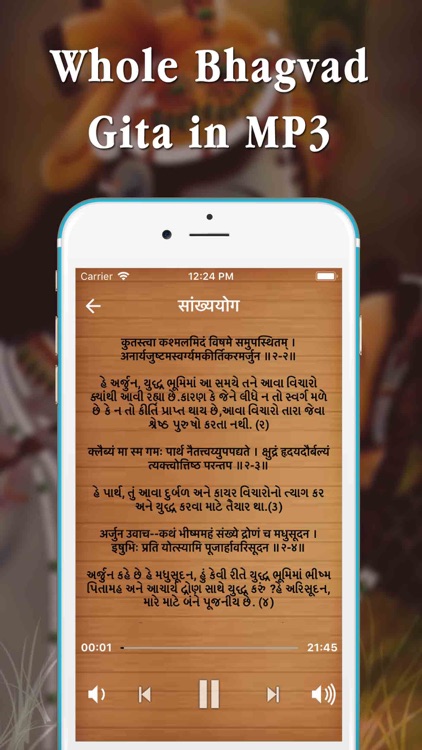 Whole Bhagvad
Gita in MP3
Carrier
12:24 PM
सांख्ययोग
कुतस्त्वा कश्मलमिदं विषमे समुपस्थितम् ।
अनार्यजुष्टमस्वर्ग्यमकीर्तिकरमर्जुन ॥२-२॥
હે અર્જુન, યુદ્ધ ભૂમિમાં આ સમયે તને આવા વિચારો
ક્યાંથી આવી રહ્યા છે.કારણ કે જેને લીધે ન તો સ્વર્ગ મળે
છે કે ન તો કીર્તિ પ્રાપ્ત થાય છે,આવા વિચારો તારા જેવા
શ્રેષ્ઠ પુરુષો કરતા નથી. (૨)
क्लैब्यं मा स्म गमः पार्थ नैतत्त्वय्युपपद्यते । क्षुद्रं हृदयदौर्बल्यं
त्यक्त्वोत्तिष्ठ परन्तप ॥२-३॥
હે પાર્થ, તું આવા દુર્બળ અને કાયર વિચારોનો ત્યાગ કર
અને યુદ્ધ કરવા માટે તૈયાર થા.(3)
अर्जुन उवाच--कथं भीष्ममहं संख्ये द्रोणं च मधुसूदन ।
इषुभिः प्रति योत्स्यामि पूजार्हावरिसूदन ॥२-४॥
અર્જુન કહે છે હે મધુસૂદન, હું કેવી રીતે યુદ્ધ ભૂમિમાં ભીષ્મ
પિતામહ અને આચાર્ય દ્રોણ સાથે યુદ્ધ કરું ?હે અરિસૂદન,
મારે માટે બંને પૂજનીય છે. (૪)
00:01
21:45